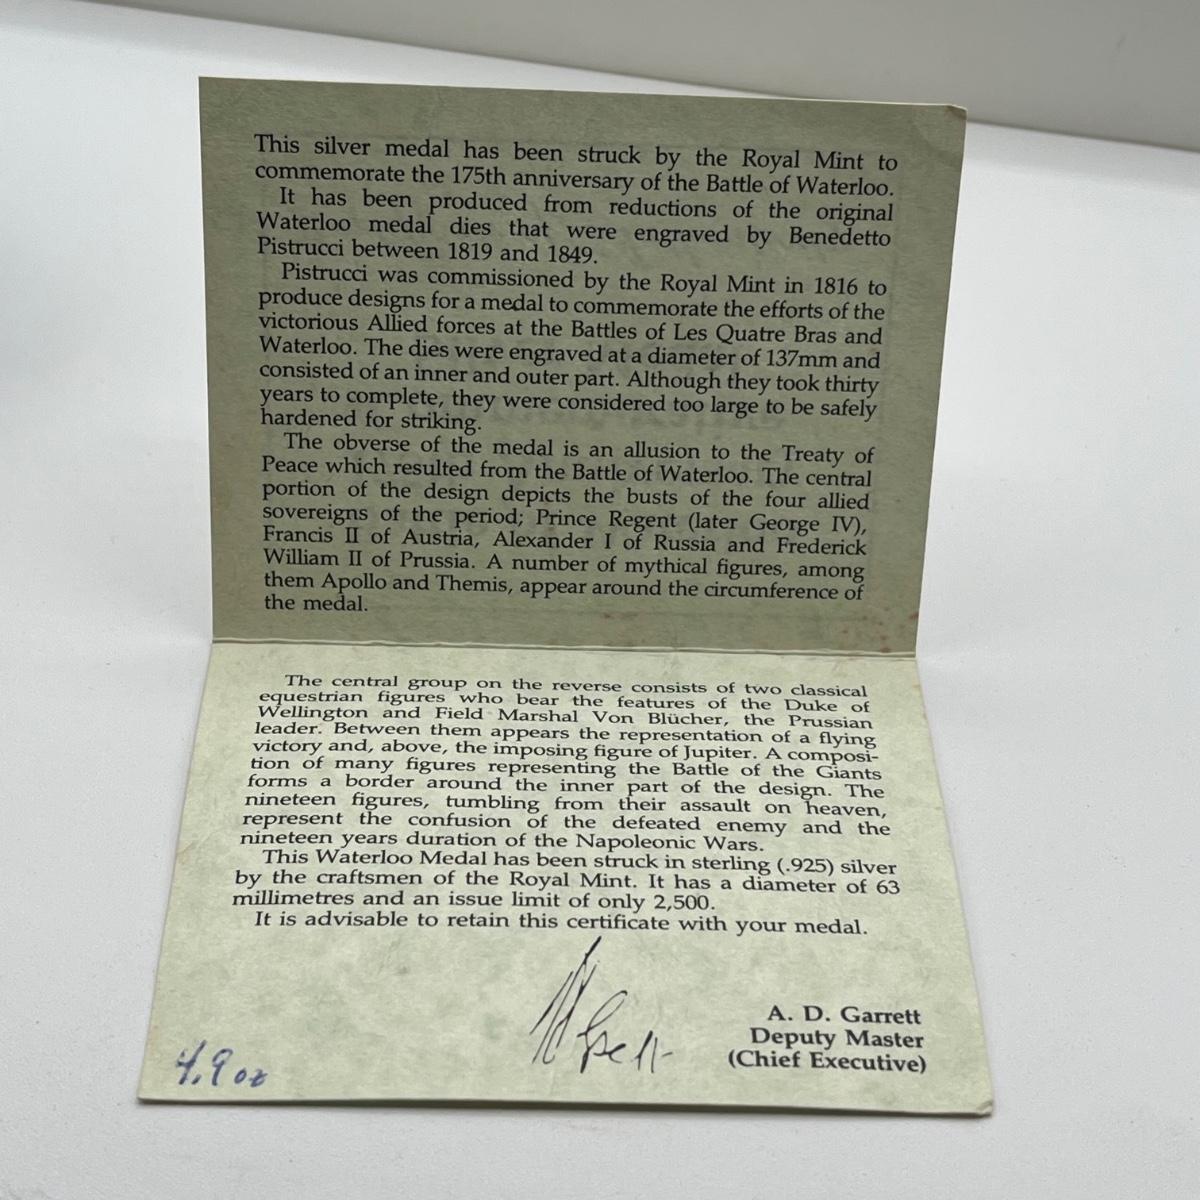 This silver medal has been struck by the Royal Mint to
commemorate the 175th anniversary of the Battle of Waterloo.
It has been produced from reductions of the original
Waterloo medal dies that were engraved by Benedetto
Pistrucci between 1819 and 1849.
Pistrucci was commissioned by the Royal Mint in 1816 to
produce designs for a medal to commemorate the efforts of the
victorious Allied forces at the Battles of Les Quatre Bras and
Waterloo. The dies were engraved at a diameter of 137mm and
consisted of an inner and outer part. Although they took thirty
years to complete, they were considered too large to be safely
hardened for striking.
The obverse of the medal is an allusion to the Treaty of
Peace which resulted from the Battle of Waterloo. The central
portion of the design depicts the busts of the four allied
sovereigns of the period; Prince Regent (later George IV),
Francis II of Austria, Alexander I of Russia and Frederick
William II of Prussia. A number of mythical figures, among
them Apollo and Themis, appear around the circumference of
the medal.
The central group on the reverse consists of two classical
equestrian figures who bear the features of the Duke of
Wellington and Field Marshal Von Blücher, the Prussian
leader. Between them appears the representation of a flying
victory and, above, the imposing figure of Jupiter. A composi-
tion of many figures representing the Battle of the Giants
forms a border around the inner part of the design. The
nineteen figures, tumbling from their assault on heaven,
represent the confusion of the defeated enemy and the
nineteen years duration of the Napoleonic Wars.
This Waterloo Medal has been struck in sterling (.925) silver
by the craftsmen of the Royal Mint. It has a diameter of 63
millimetres and an issue limit of only 2,500.
It is advisable to retain this certificate with your medal.
A. D. Garrett
Deputy Master
(Chief Executive)
4.9 oz